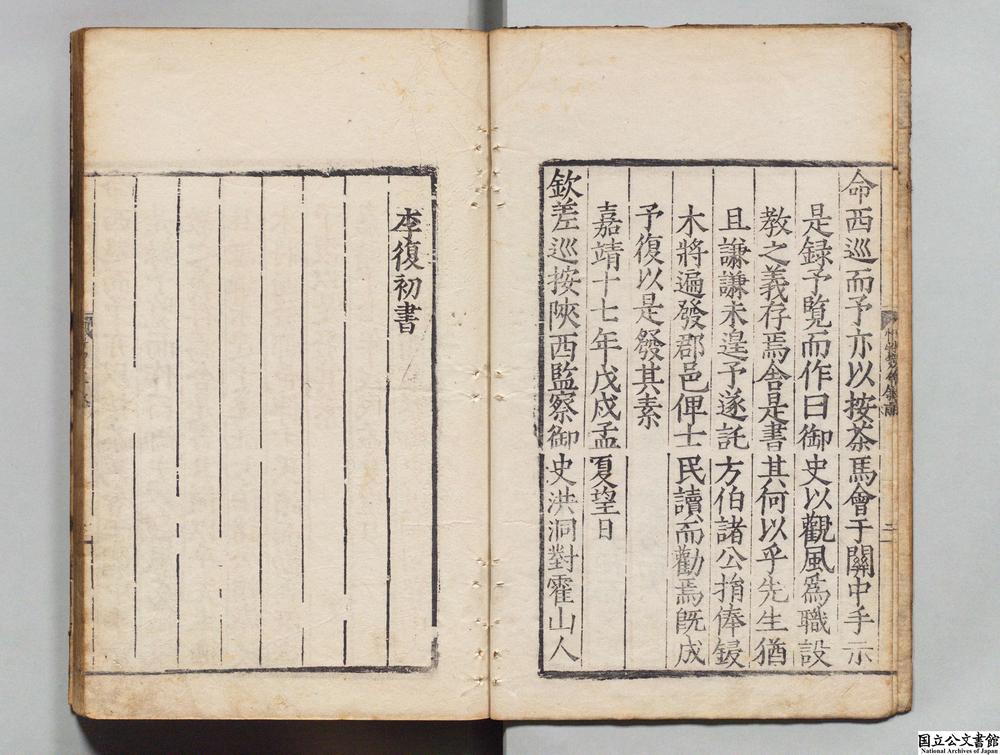 命西巡而予亦以按茶馬會于關中手示
是録予覧而作曰御史以觀風爲職設
教之義存焉舍是書其何以乎先生猶
且謙謙未遑予遂託方伯諸公捐俸鋟
木將遍發郡邑俾士民讀而勸焉既成
予復以是發其素
嘉靖十七年戊戌孟夏望日
欽差巡按陝西監察御史洪洞對霍山人
李復初書
国立公文書館
National Archives of Japan